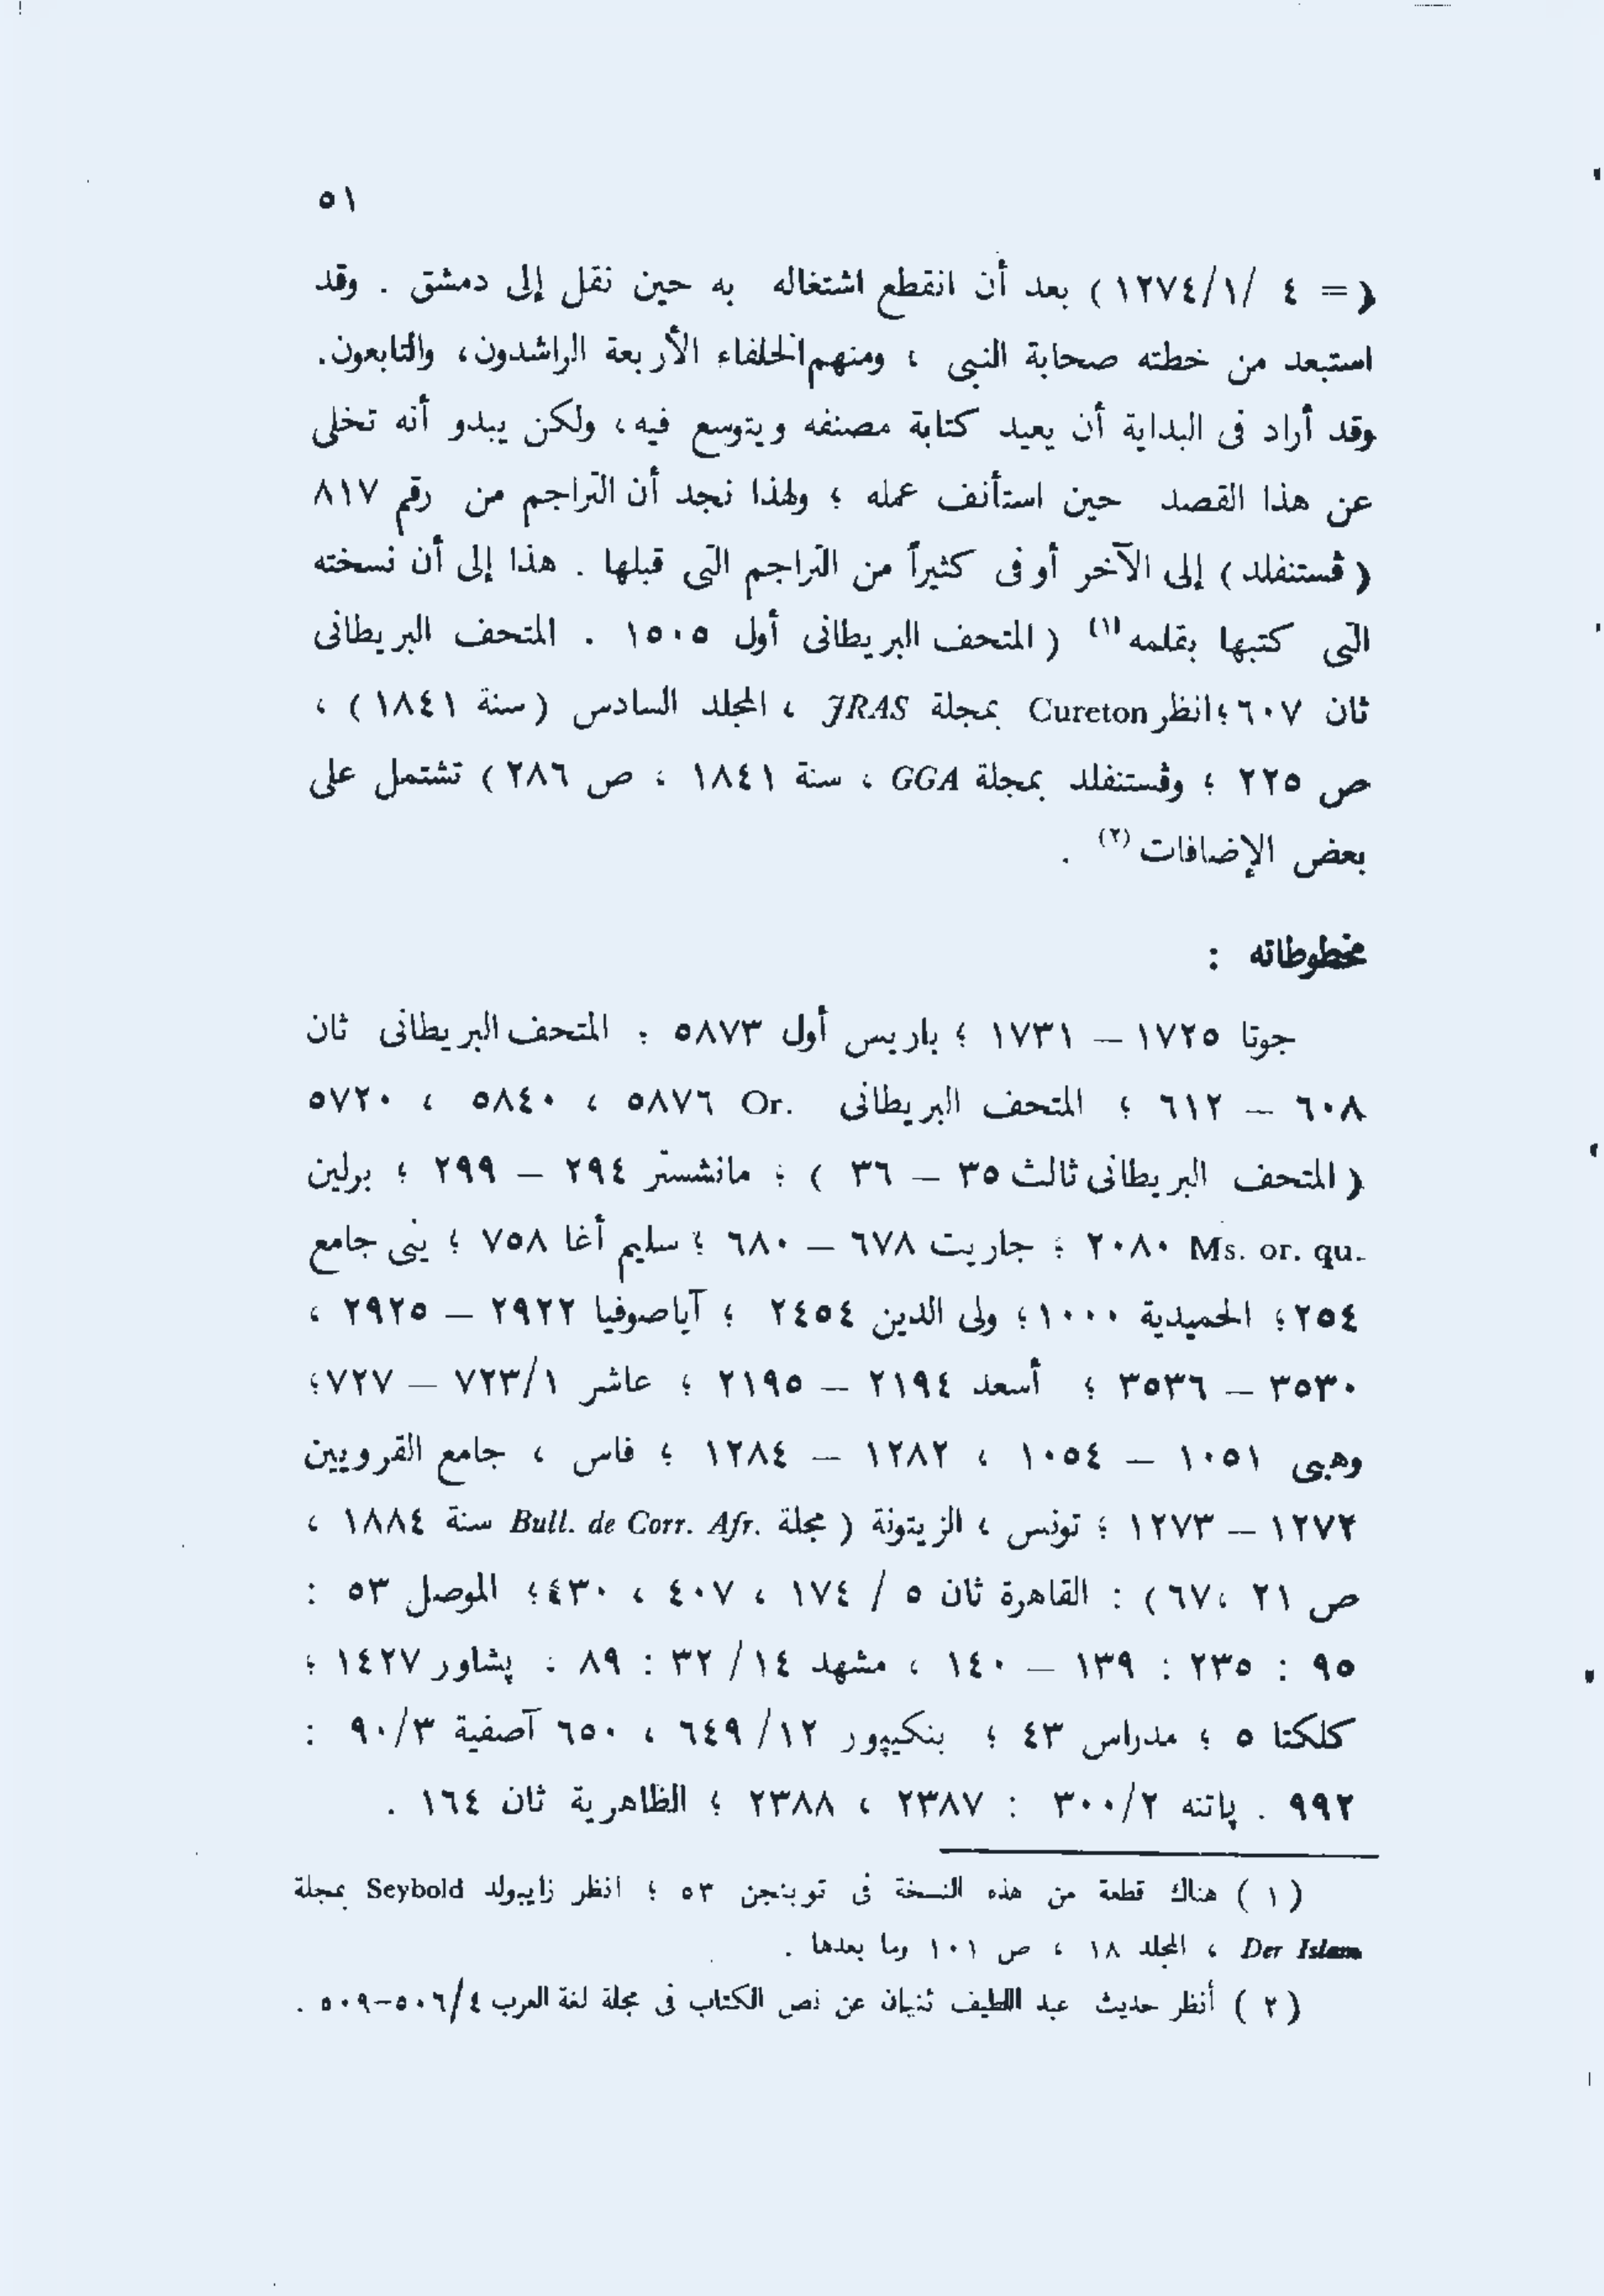 ٥١
( = ٤ /١٢٧٤/١) بعد أن انقطع اشتغاله به حين نقل إلى دمشق . وقد
استبعد من خطته صحابة النبى ، ومنهم الخلفاء الأربعة الراشدون، والتابعون.
وقد أراد فى البداية أن يعيد كتابة مصنفه ويتوسع فيه، ولكن يبدو أنه تخلى
عن هذا القصد حين استأنف عمله ؛ ولهذا نجد أن التراجم من رقم ٨١٧
( ڤستنفلد ) إلى الآخر أوفى كثيراً من التراجم التى قبلها . هذا إلى أن نسخته
التى كتبها بقلمه (١) ( المتحف البريطانى أول ١٥٠٥ . المتحف البريطانى
ثان ٦٠٧ ؛ انظر Cureton بمجلة JRAS ، المجلد السادس ( سنة ١٨٤١ ) ،
ص ٢٢٥ ؛ وڤستنفلد بمجلة GGA ، سنة ١٨٤١ ، ص ٢٨٦ ) تشتمل على
بعض الإضافات (٢) .
مخطوطاته :
جوتا ١٧٢٥ – ١٧٣١ ؛ باريس أول ٥٨٧٣ : المتحف البريطانى ثان
٦٠٨ – ٦١٢ ؛ المتحف البريطانى Or. ٥٨٧٦ ، ٥٨٤٠ ، ٥٧٢٠
( المتحف البريطانى ثالث ٣٥ – ٣٦ ) ؛ مانشستر ٢٩٤ – ٢٩٩ ؛ برلين
Ms. or. qu. ٢٠٨٠ ؛ جاريت ٦٧٨ – ٦٨٠ ؛ سليم أغا ٧٥٨ ؛ ينى جامع
٢٥٤ ؛ الحميدية ١٠٠٠ ؛ ولى الدين ٢٤٥٤ ؛ آياصوفيا ٢٩٢٢ – ٢٩٢٥ ،
٣٥٣٠ – ٣٥٣٦ ؛ أسعد ٢١٩٤ – ٢١٩٥ ؛ عاشر ٧٢٣/١ – ٧٢٧ ؛
وهبى ١٠٥١ – ١٠٥٤ ، ١٢٨٢ – ١٢٨٤ ؛ فاس ، جامع القرويين
١٢٧٢ – ١٢٧٣ ؛ تونس ، الزيتونة ( مجلة Bull. de Corr. Afr. سنة ١٨٨٤ ،
ص ٢١ ،٦٧ ) : القاهرة ثان ٥ / ١٧٤ ، ٤٠٧ ، ٤٣٠ ؛ الموصل ٥٣ :
٩٥ : ٢٣٥ : ١٣٩ – ١٤٠ ، مشهد ١٤ / ٣٢ : ٨٩ : پشاور ١٤٢٧ ؛
كلكتا ٥ ؛ مدراس ٤٣ ؛ بنكيپور ١٢ / ٦٤٩ ، ٦٥٠ آصفية ٩٠/٣ :
٩٩٢ . پاتنه ٣٠٠/٢ : ٢٣٨٧ ، ٢٣٨٨ ؛ الظاهرية ثان ١٦٤ .
( ١ ) هناك قطعة من هذه النسخة فى توبنجن ٥٣ ؛ انظر زايبولد Seybold بمجلة
Der Islam ، المجلد ١٨ ، ص ١٠١ وما بعدها .
( ٢ ) أنظر حديث عبد اللطيف ثنيان عن نص الكتاب فى مجلة لغة العرب ٥٠٦/٤–٥٠٩ .